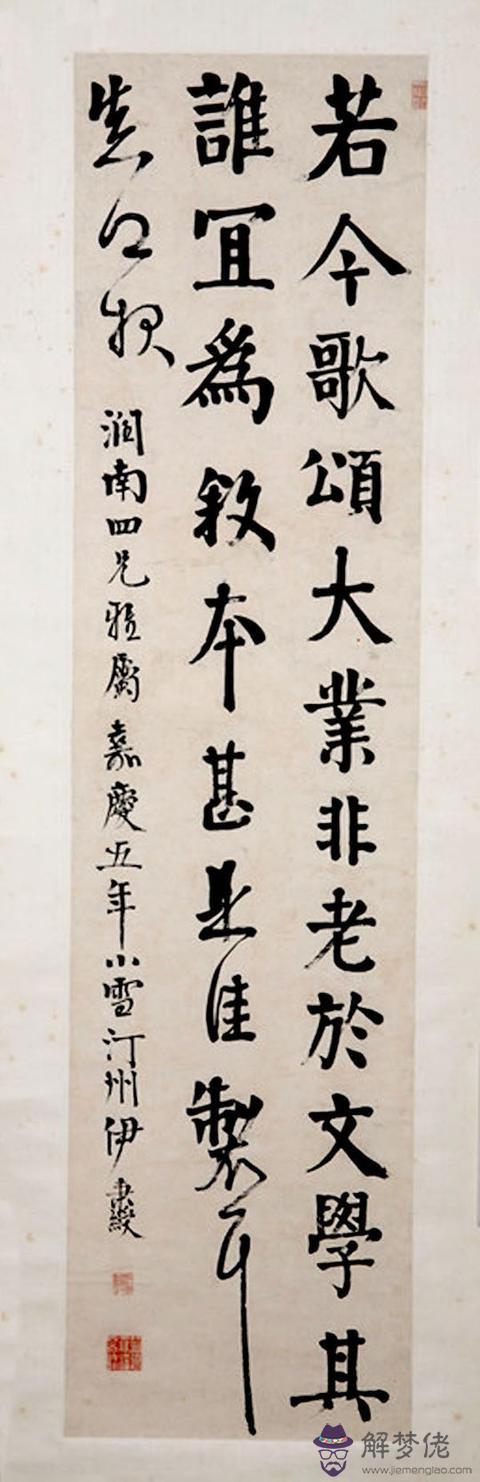 若今歌頌大業非老於文學其
誰冝爲敘本甚是佳製耳
潤南四兄雅屬嘉慶五年小雪汀州伊秉綬
解梦佬
www.jiemenglao.com